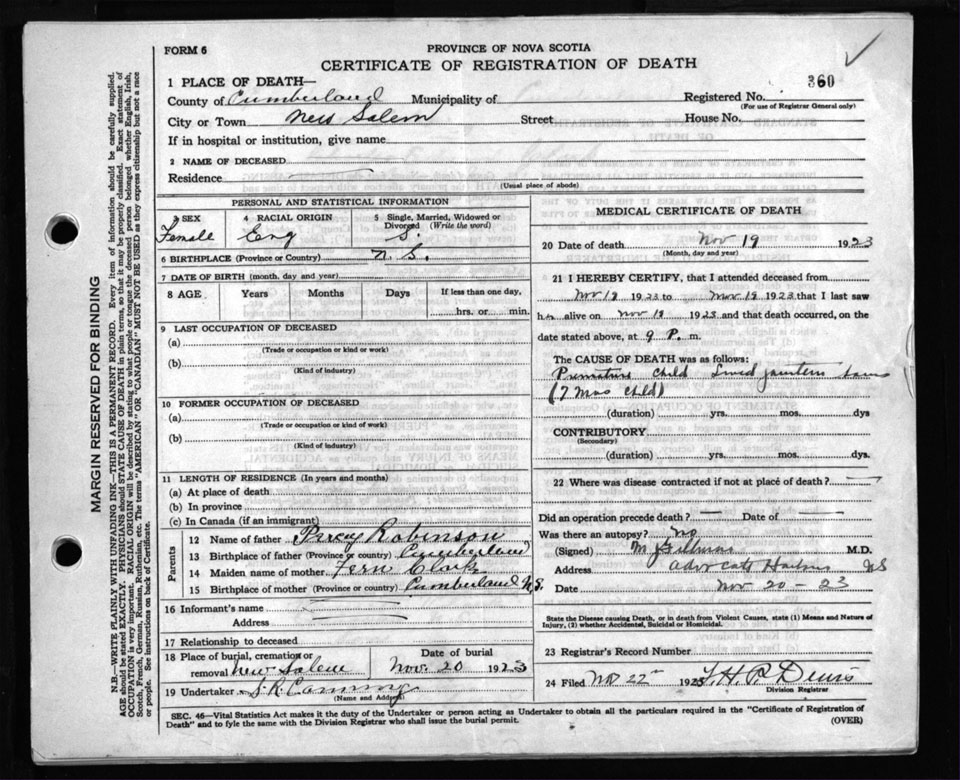 FORM 6
PROVINCE OF NOVA SCOTIA
CERTIFICATE OF REGISTRATION OF DEATH
360
1 PLACE OF DEATH—
County of Cumberland Municipality of Registered No.
(For use of Registrar General only)
City or Town New Salem Street House No.
If in hospital or institution, give name
2 NAME OF DECEASED
Residence
(Usual place of abode)
PERSONAL AND STATISTICAL INFORMATION
3 SEX 4 RACIAL ORIGIN 5 Single, Married, Widowed or Divorced (Write the word)
Female Eng S.
6 BIRTHPLACE (Province or Country) N. S.
7 DATE OF BIRTH (month, day and year)
8 AGE Years Months Days If less than one day,
hrs. or min.
9 LAST OCCUPATION OF DECEASED
(a)
(Trade or occupation or kind or work)
(b)
(Kind of industry)
10 FORMER OCCUPATION OF DECEASED
(a)
(Trade or occupation or kind of work)
(b)
(Kind of industry)
11 LENGTH OF RESIDENCE (In years and months)
(a) At place of death
(b) In province
(c) In Canada (if an immigrant)
Parents
12 Name of father Percy Robinson
13 Birthplace of father (Province or country) Cumberland
14 Maiden name of mother Fern Clark
15 Birthplace of mother (Province or country) Cumberland N.S.
16 Informant's name
Address
17 Relationship to deceased
18 Place of burial, cremation or removal New Salem Date of burial Nov. 20 1923
19 Undertaker S. R. Canning
(Name and Address)
MEDICAL CERTIFICATE OF DEATH
20 Date of death Nov 19 1923
(Month, day and year)
21 I HEREBY CERTIFY, that I attended deceased from
Nov 19 1923 to Nov 19 1923 that I last saw
h alive on Nov 19 1923 and that death occurred, on the
date stated above, at 9 P. m.
The CAUSE OF DEATH was as follows:
Premature child Lived
(7 Mos child)
(duration) yrs. mos. dys
CONTRIBUTORY
(Secondary)
(duration) yrs. mos. dys.
22 Where was disease contracted if not at place of death?
Did an operation precede death? — Date of —
Was there an autopsy? No
(Signed) M.D.
Address Advocate Harbour NS
Date Nov 20 - 23
State the Disease causing Death, or in death from Violent Causes, state (1) Means and Nature of
Injury, (2) whether Accidental, Suicidal or Homicidal.
23 Registrar's Record Number
24 Filed Nov 22 1923
Division Registrar
SEC. 46—Vital Statistics Act makes it the duty of the Undertaker or person acting as Undertaker to obtain all the particulars required in the "Certificate of Registration of
Death" and to fyle the same with the Division Registrar who shall issue the burial permit.
(OVER)
MARGIN RESERVED FOR BINDING
N.B.—WRITE PLAINLY WITH UNFADING INK—THIS IS A PERMANENT RECORD. Every item of information should be carefully supplied.
AGE should be stated EXACTLY. PHYSICIANS should STATE CAUSE OF DEATH in plain terms, so that it may be properly classified. Exact statement of
OCCUPATION is very important. RACIAL ORIGIN will be described by stating to what people or tongue the deceased person belonged whether English, Irish,
Scotch, French, German, Russian, Ruthenian, etc. The terms "AMERICAN" OR "CANADIAN" MUST NOT BE USED as they express citizenship but not a race
or people. See instructions on back of Certificate.